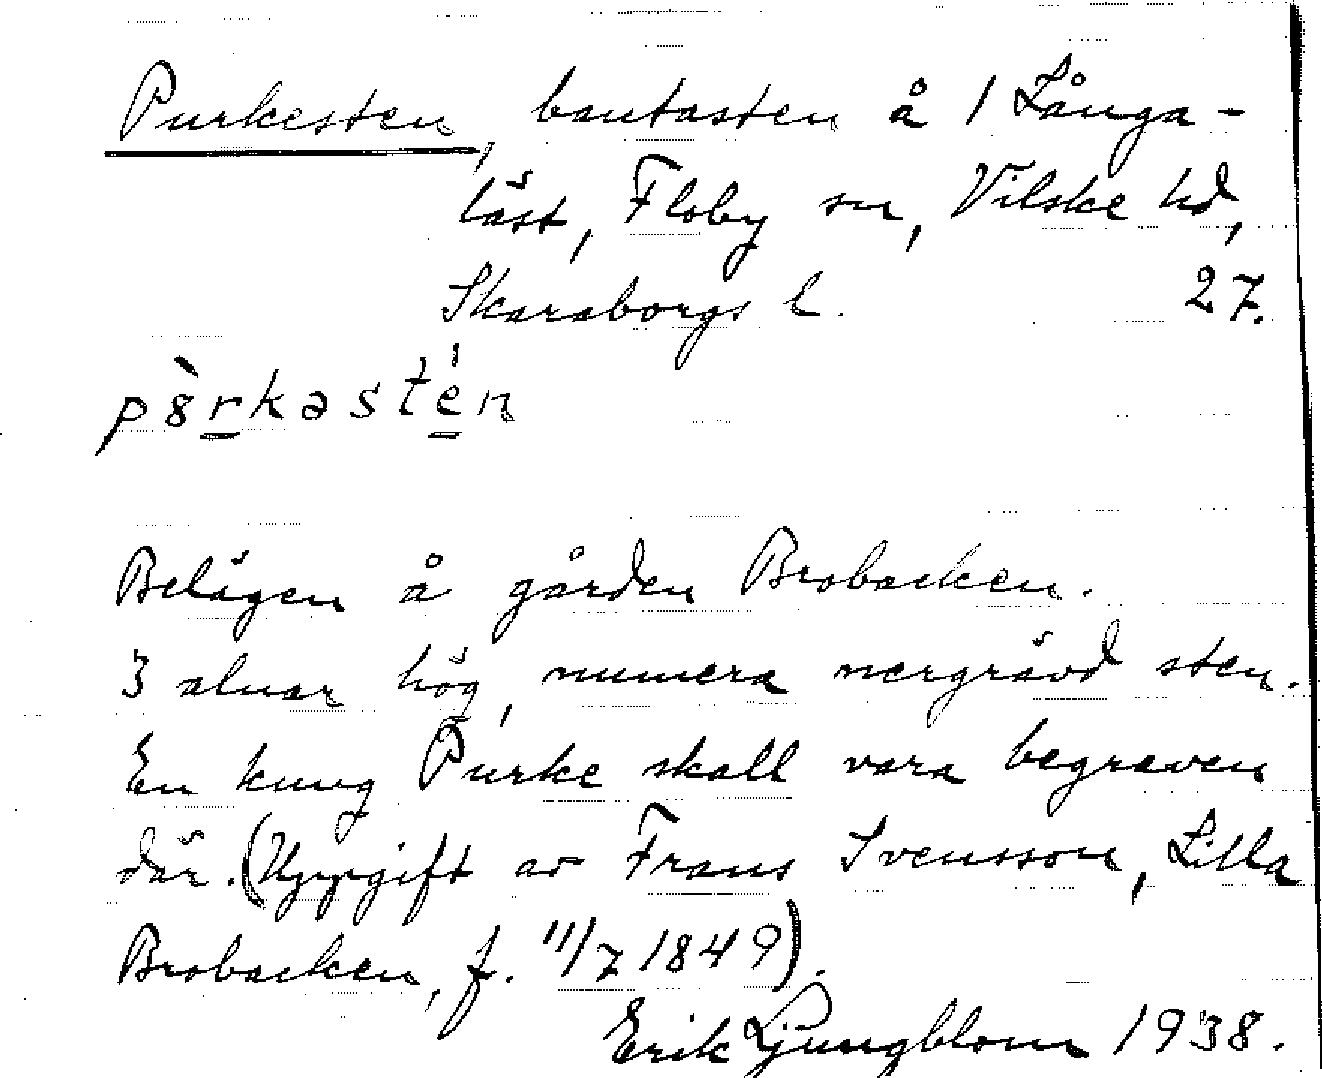 Purkesten, bautasten å 1 Långa-
läst, Floby sn, Vilske hd,
Skaraborgs l. 27.
pȯ̀rkastén
Belägen å gården Brobacken.
3 alnar hög, numera nergrävd sten.
En kung Purke skall vara begraven
där. (Uppgift av Frans Svensson, Lilla
Brobacken, f. 11/7 1849).
Erik Ljungblom 1938.